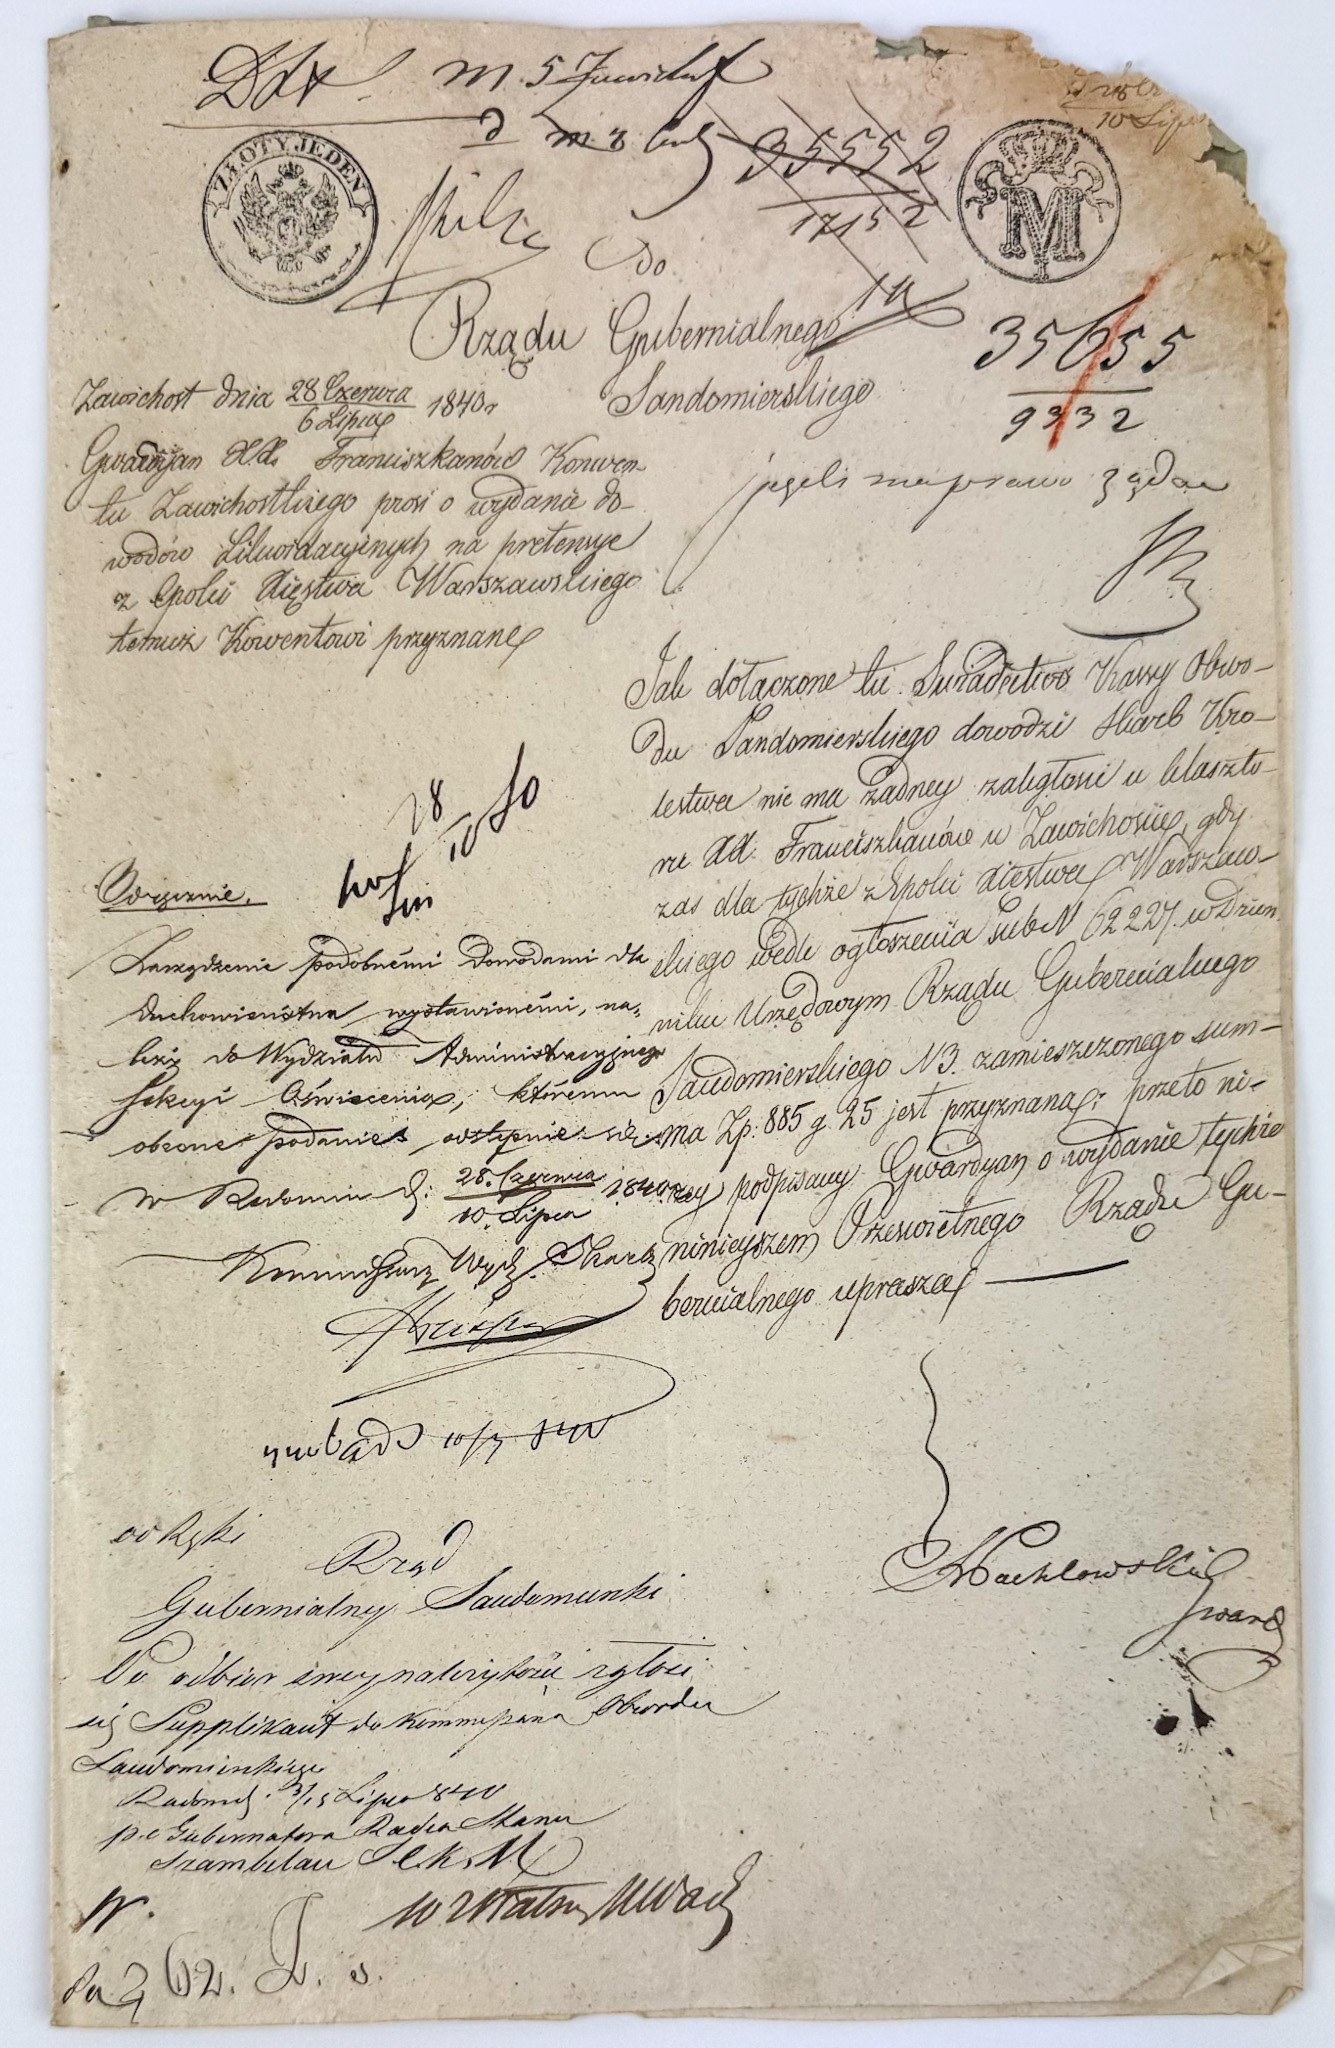 ZŁOTY JEDEN
M
35552
17152
Do
Rządu Gubernialnego
Sandomierskiego
35655
9332
10 Lipca
Zawichost dnia 28 Czerwca 1840 r
6 Lipca
Gwardyan XX. Franciszkanów Konwen-
tu Zawichostskiego prosi o wydanie do-
wodów Likwidacyjnych na pretensye
z Epoki Xięstwa Warszawskiego
temuż Konwentowi przyznane
jeżeli ma prawo żądać
Jak dołączone tu Swiadectwo Kassy Obwo-
du Sandomierskiego dowodzi Skarb Kro-
lestwa nie ma żadney zaległosci u klaszto-
ru XX. Franciszkanów w Zawichoscie, gdy
zas dla tychże z Epoki Xięstwa Warszaw-
skiego wedle ogłoszenia sub N 62227. w Dzien
niku Urzędowym Rządu Gubernialnego
Sandomierskiego N 3. zamieszczonego sum-
ma Zp: 885 g 25 jest przyznana; przeto ni-
zey podpisany Gwardyan o wydanie tychże
ninieyszem Przeswietnego Rządu Gu-
bernialnego uprasza
Wachlowski
Gward
28
IV 50
Odręcznie.
Zarządzenie podobnemi Dowodami dla
Duchowieństwa wystawionemi, na-
leży do Wydziału Administracyjnego
Sekcyi Oświecenia, któremu
obecne podanie odstępuie się
w Radomiu d: 28. Czerwca 1840 r
10. Lipca
Kommissarz Wydz. Skarb
10/7 840
do Ręki
Rząd
Gubernialny Sandomierski
Po odbior swey należytości zgłosi
się Supplikant do Kommissarza Obwodu
Sandomierskiego
Radom d. 3/15 Lipca 840
p.o Gubernatora Radca Stanu
Szambelan
W.
62. L. s.